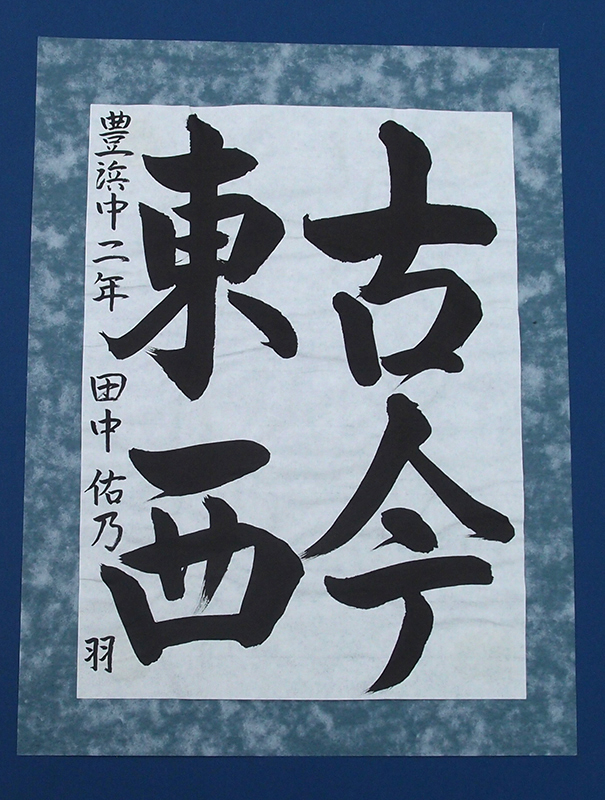 古今
東西
豊浜中二年 田中佑乃羽